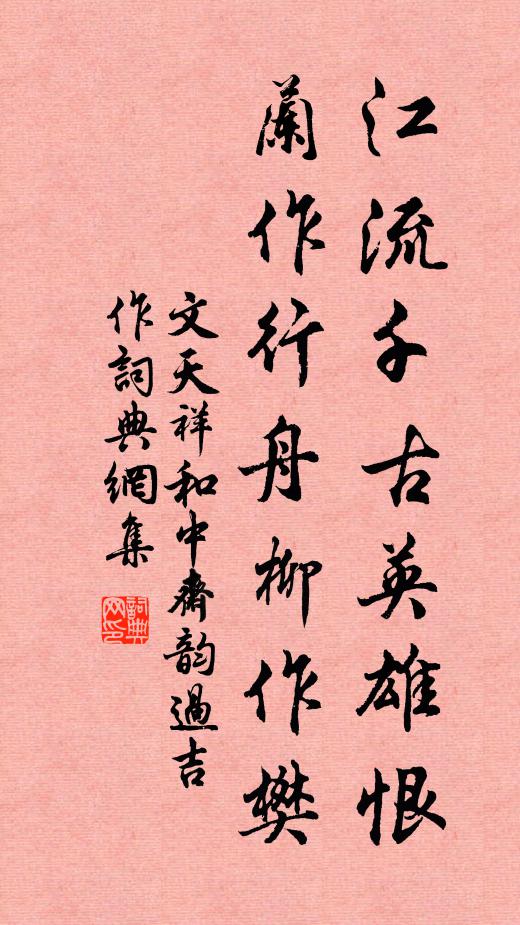 江流千古英雄恨
蘭作行舟柳作樊
文天祥和中齋韵過吉
作詞典網集
詞典網印